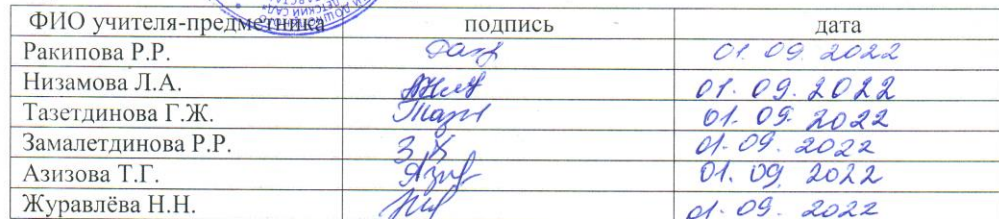 ДЕТСКИЙ САД
ФИО учителя-предметника подпись дата
Ракипова Р.Р. 01.09.2022
Низамова Л.А. 01.09.2022
Тазетдинова Г.Ж. 01.09.2022
Замалетдинова Р.Р. 01.09.2022
Азизова Т.Г. 01.09.2022
Журавлёва Н.Н. 01.09.2022